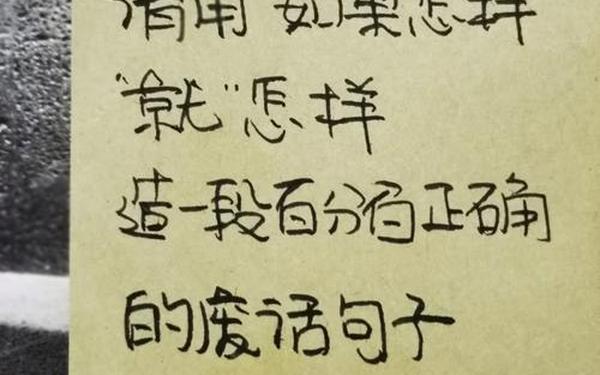 请用"如果怎样
"就"怎样
造一段百分百正确
的废话句子